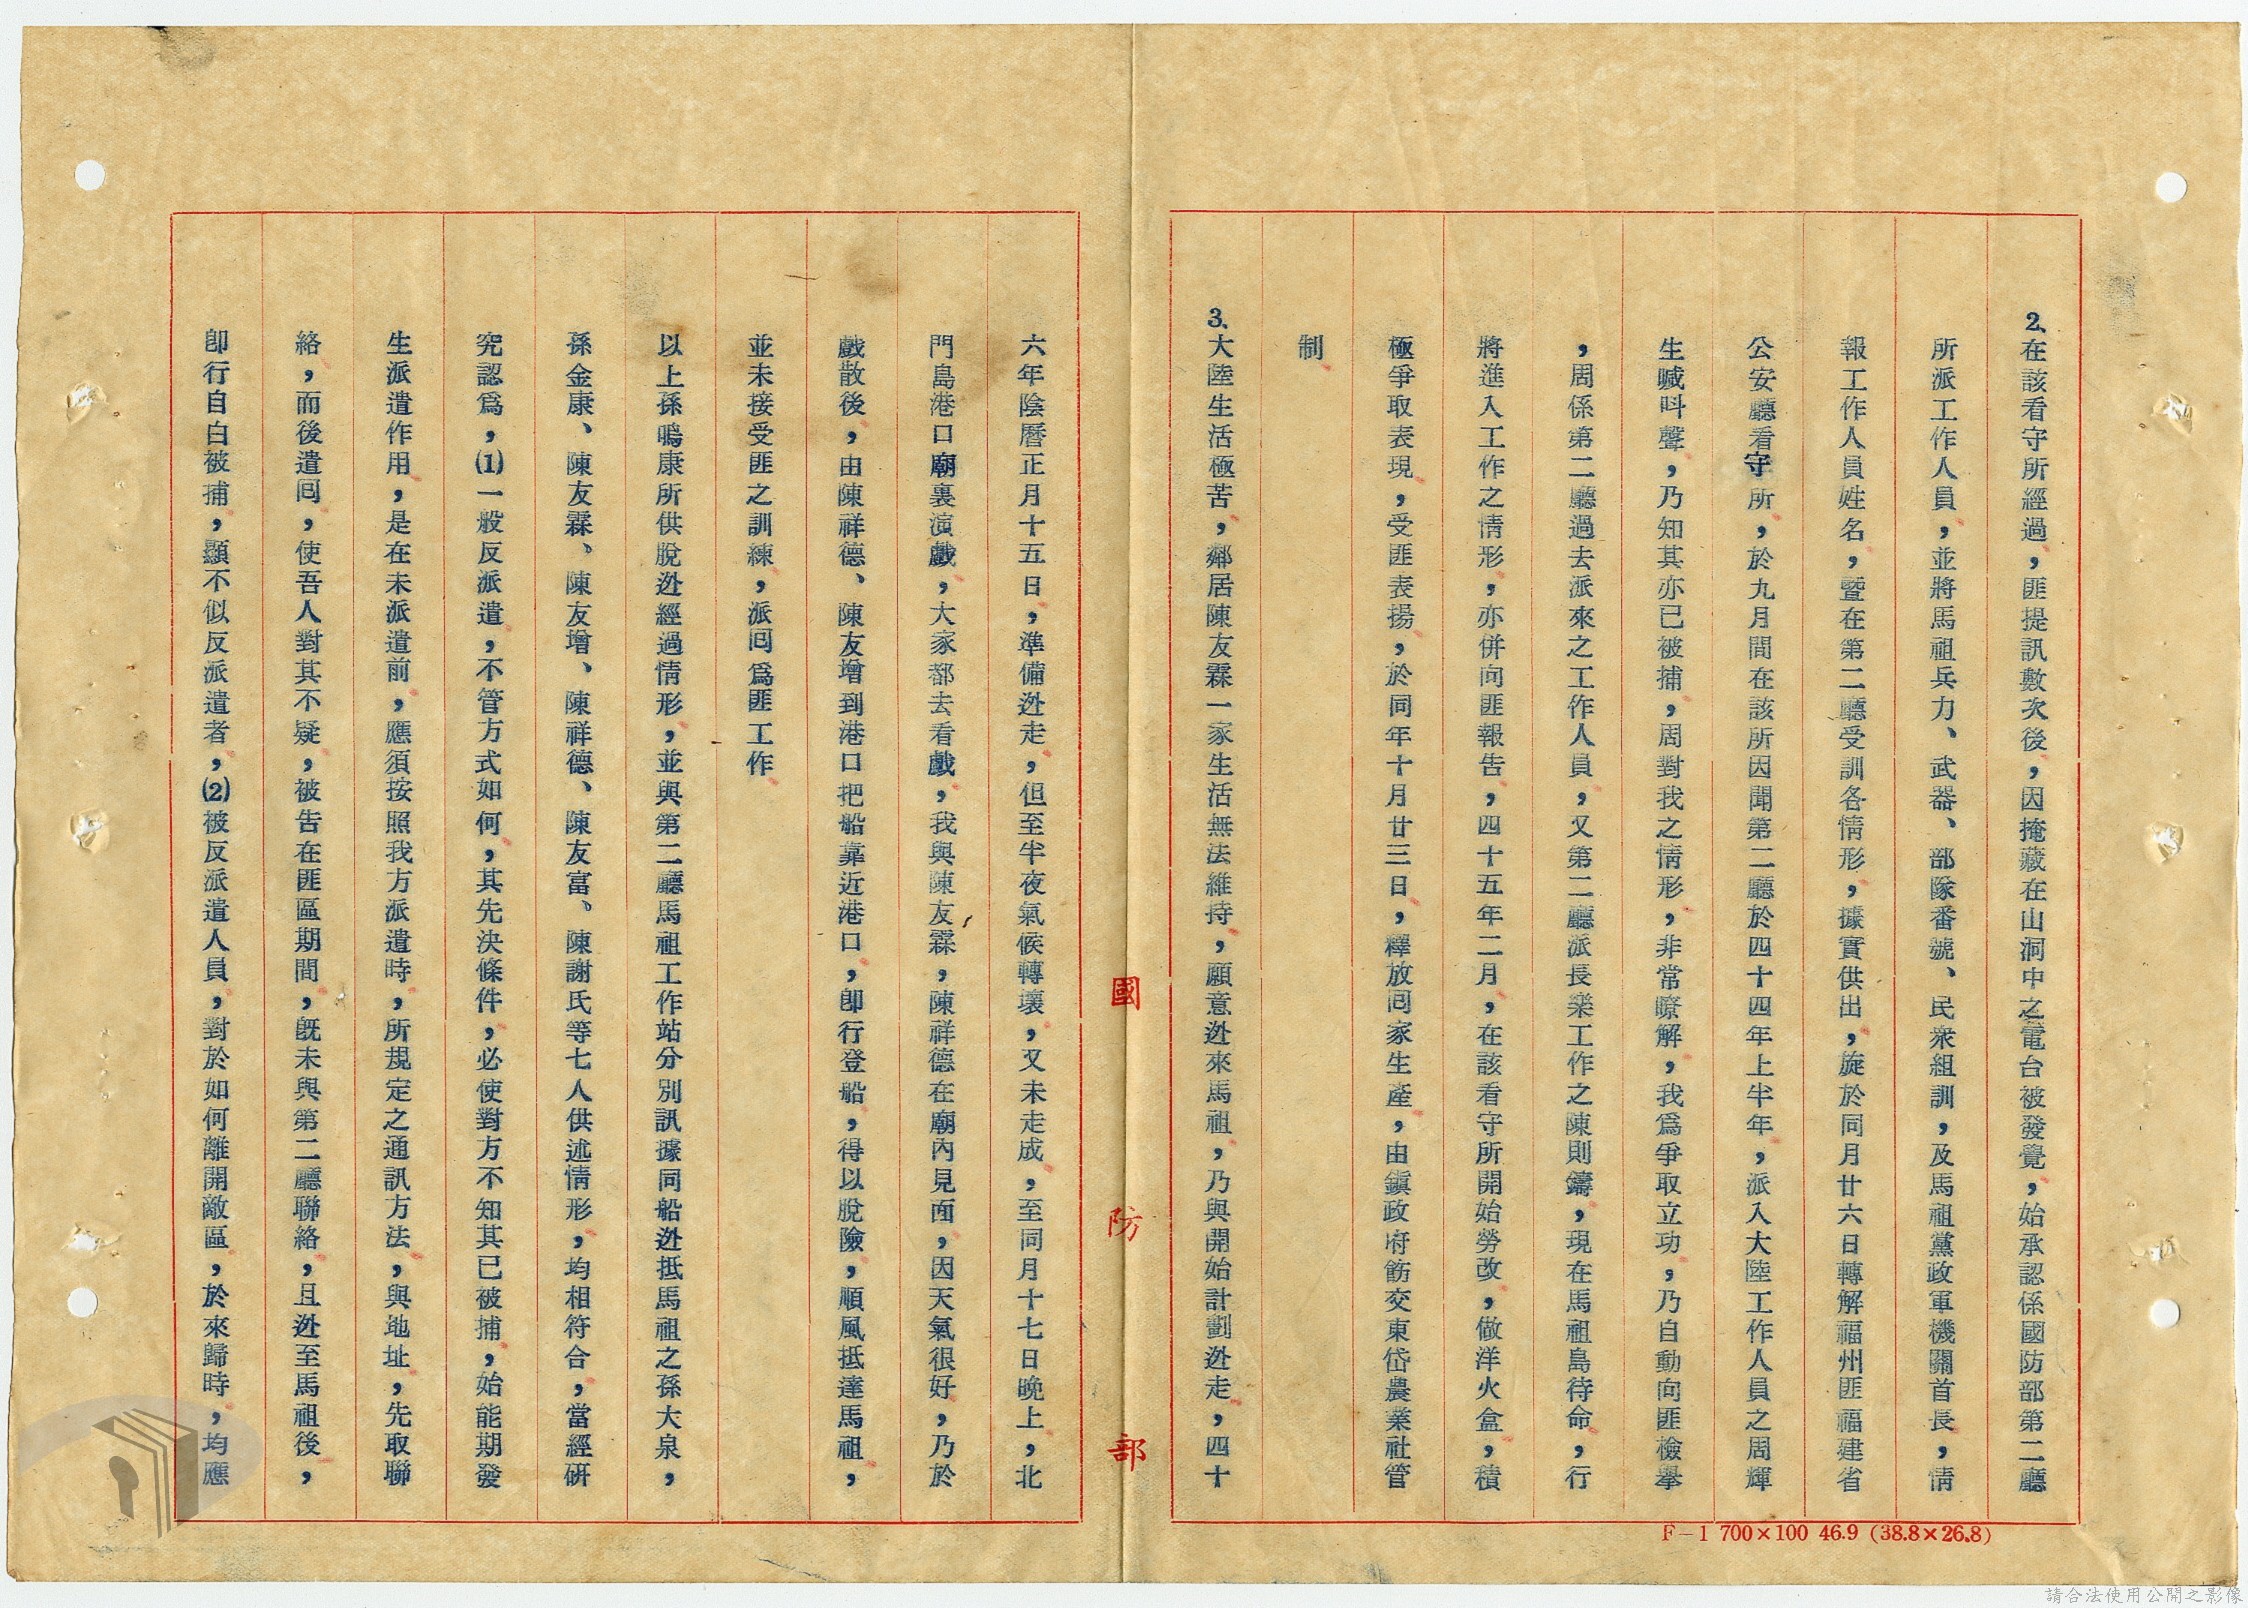 2、在該看守所經過，匪提訊數次後，因掩藏在山洞中之電台被發覺，始承認係國防部第二廳
所派工作人員，並將馬祖兵力、武器、部隊番號、民衆組訓，及馬祖黨政軍機關首長，情
報工作人員姓名，暨在第二廳受訓各情形，據實供出，旋於同月廿六日轉解福州匪福建省
公安廳看守所，於九月間在該所因聞第二廳於四十四年上半年，派入大陸工作人員之周輝
生喊叫聲，乃知其亦已被捕，周對我之情形，非常瞭解，我爲爭取立功，乃自動向匪檢舉
，周係第二廳過去派來之工作人員，又第二廳派長樂工作之陳則鑄，現在馬祖島待命，行
將進入工作之情形，亦併向匪報告，四十五年二月，在該看守所開始勞改，做洋火盒，積
極爭取表現，受匪表揚，於同年十月廿三日，釋放囘家生產，由鎭政府飭交東岱農業社管
制
3、大陸生活極苦，鄰居陳友霖一家生活無法維持，願意逃來馬祖，乃與開始計劃逃走，四十
六年陰曆正月十五日，準備逃走，但至半夜氣候轉壞，又未走成，至同月十七日晚上，北
門島港口廟裏演戲，大家都去看戲，我與陳友霖，陳祥德在廟內見面，因天氣很好，乃於
戲散後，由陳祥德、陳友增到港口把船靠近港口，卽行登船，得以脫險，順風抵達馬祖，
並未接受匪之訓練，派囘爲匪工作
以上孫鳴康所供脫逃經過情形，並與第二廳馬祖工作站分別訊據同船逃抵馬祖之孫大泉，
孫金康、陳友霖、陳友增、陳祥德、陳友富、陳謝氏等七人供述情形，均相符合，當經研
究認爲，(1)一般反派遣，不管方式如何，其先決條件，必使對方不知其已被捕，始能期發
生派遣作用，是在未派遣前，應須按照我方派遣時，所規定之通訊方法，與地址，先取聯
絡，而後遣囘，使吾人對其不疑，被告在匪區期間，旣未與第二廳聯絡，且逃至馬祖後，
卽行自白被捕，顯不似反派遣者，(2)被反派遣人員，對於如何離開敵區，於來歸時，均應
國防部
F－1 700×100 46.9 (38.8×26.8)
請合法使用公開之影像